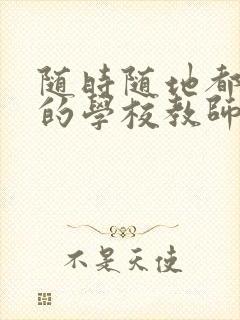 随時随地都
的學校教師
不是天使